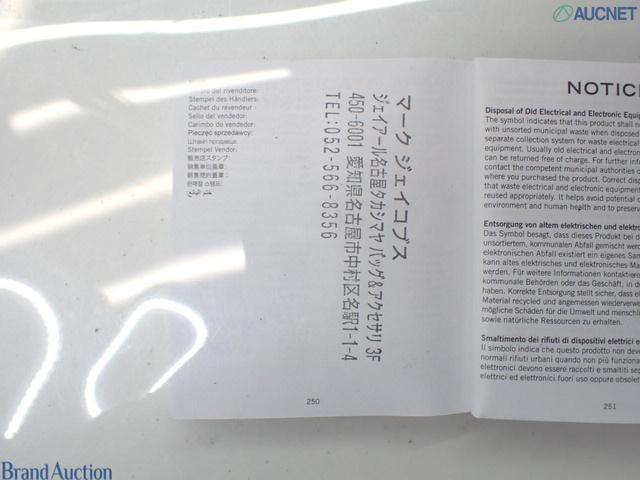 AUCNET
Timbro del rivenditore:
Stempel des Händlers:
Cachet du revendeur :
Sello del vendedor:
Carimbo do vendedor:
Pieczęć sprzedawcy:
Штамп продавца:
Stempel Vendor:
販売店スタンプ:
マーク ジェイコブス
ジェイアール名古屋タカシマヤ バッグ&アクセサリ 3F
450-6001 愛知県名古屋市中村区名駅1-1-4
TEL:052-566-8356
250
NOTIC
Disposal of Old Electrical and Electronic Equip
The symbol indicates that this product shall n
with unsorted municipal waste when disposed
separate collection system for waste electrical
equipment. Usually old electrical and electron
can be returned free of charge. For further inf
contact the competent municipal authorities o
where you purchased the product. Correct disp
that waste electrical and electronic equipment
reused appropriately. It helps avoid potential
environment and human health and to preserv
Entsorgung von altem elektrischen und elektro
Das Symbol besagt, dass dieses Produkt bei de
unsortiertem, kommunalen Abfall gemischt werd
elektronischen Abfall existiert ein eigenes Sam
kann altes elektrisches und elektronisches Mat
werden. Für weitere Information kontaktieren
kommunale Behörden oder das Geschäft, in de
haben. Korrekte Entsorgung stellt sicher, dass el
Material recycled und angemessen wiederverwe
mögliche Schäden für die Umwelt und menschli
sowie natürliche Ressourcen zu erhalten.
Smaltimento dei rifiuti di dispositivi elettrici e
Il simbolo indica che questo prodotto non deve
normali rifiuti urbani quando non più funziona
elettronici devono essere raccolti e smaltiti se
elettrici ed elettronici fuori uso oppure obsolet
251
Brand Auction